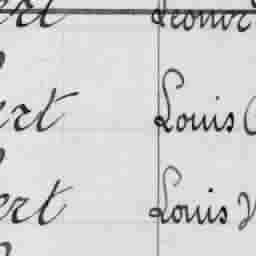 ert Léonor
ert Louis
ert Louis